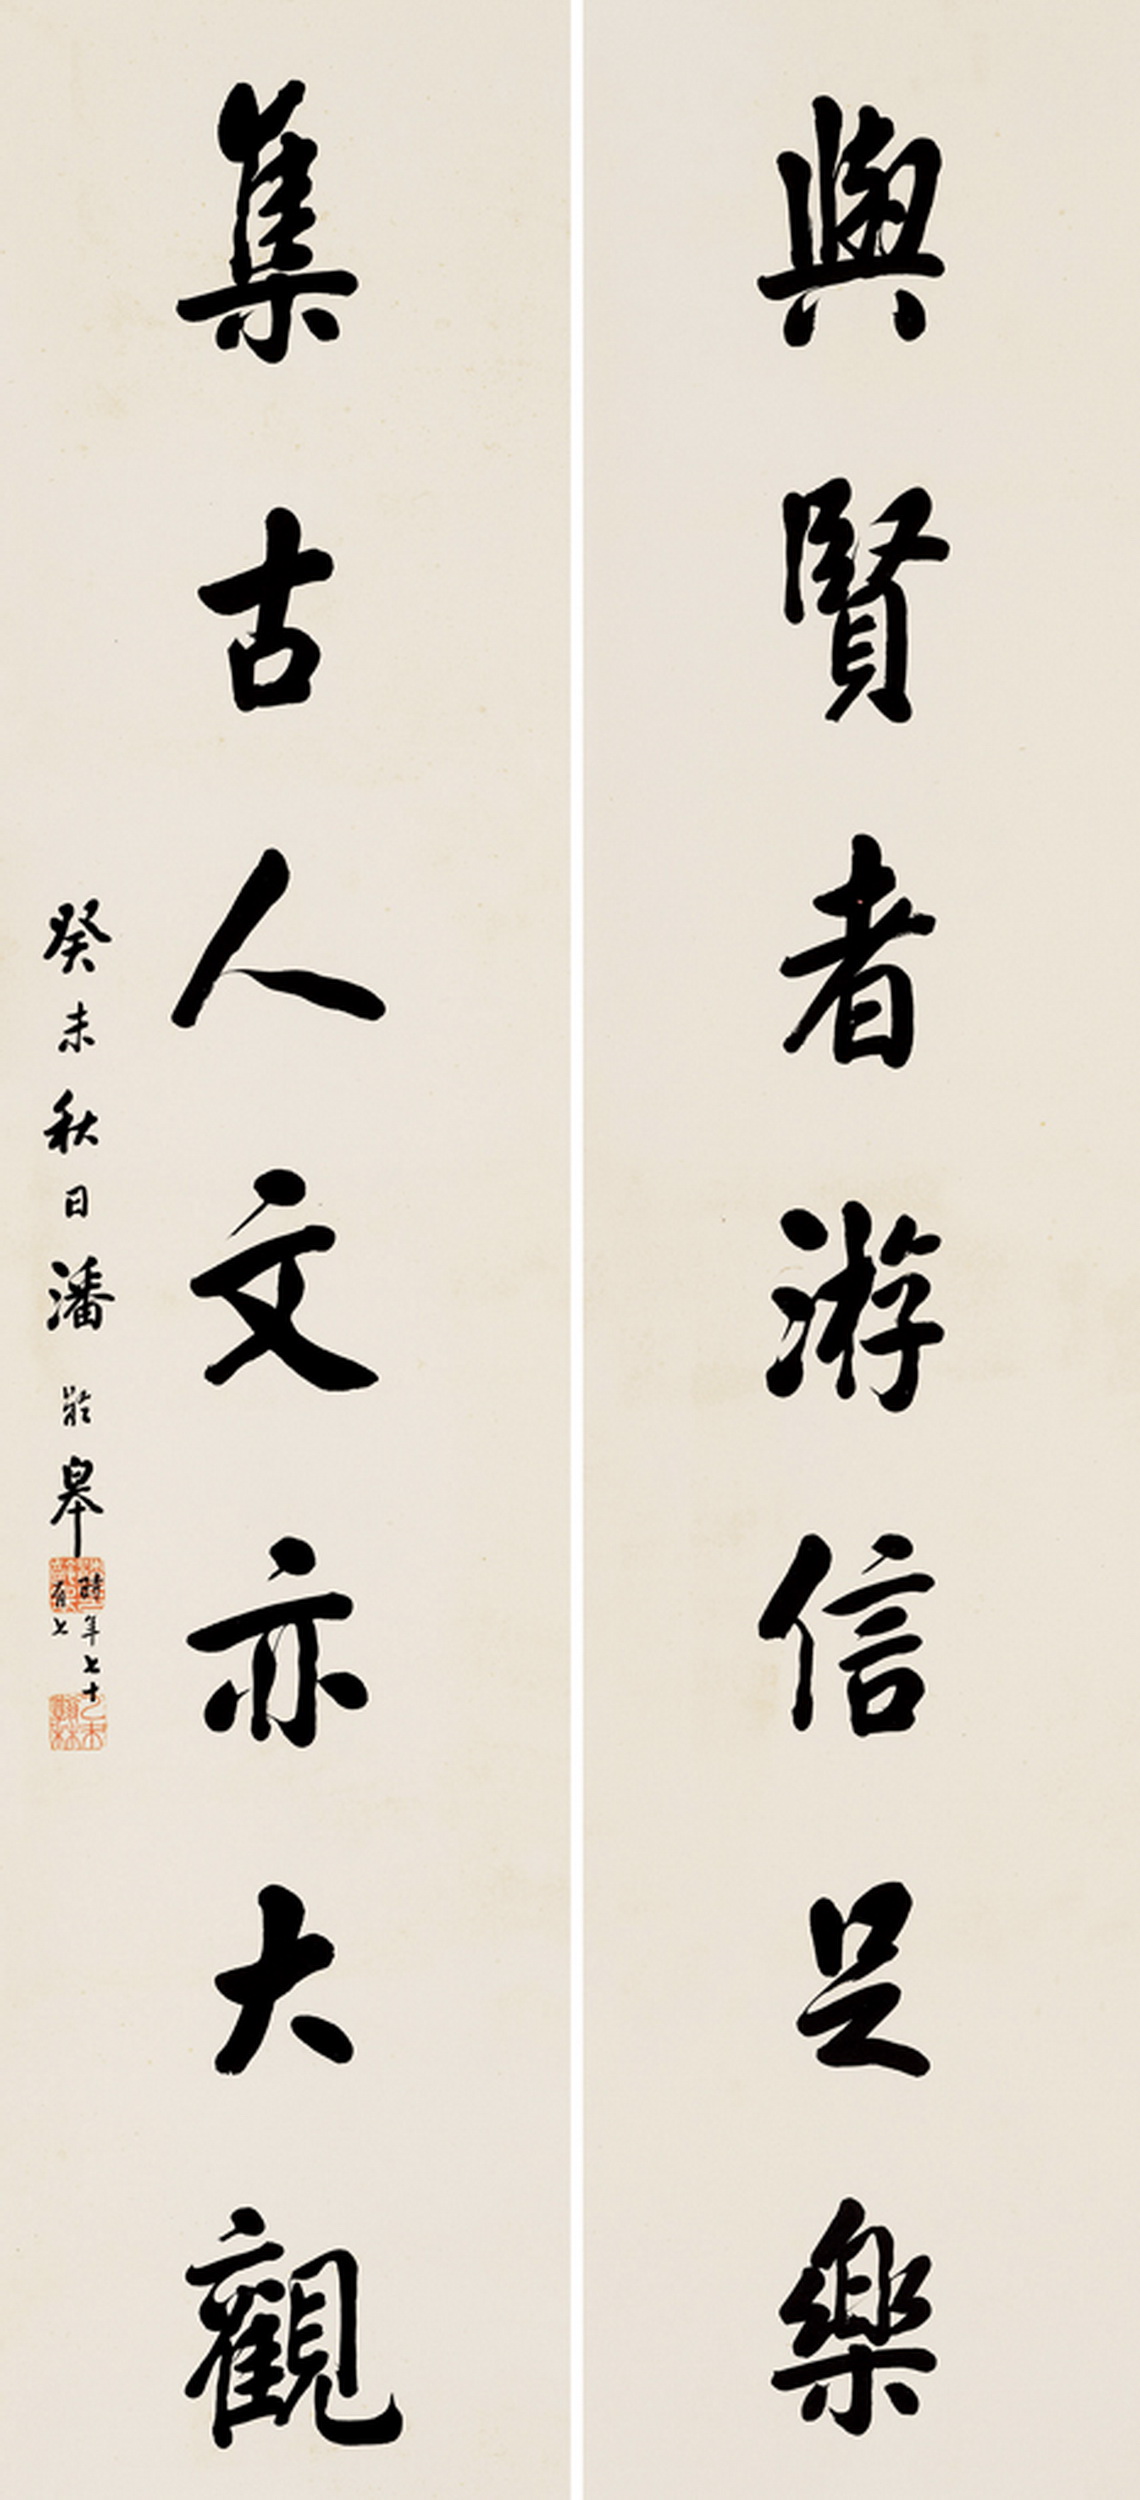 與賢者游信足樂
集古人文亦大觀
癸未秋日潘齡皋
時年七十
有七